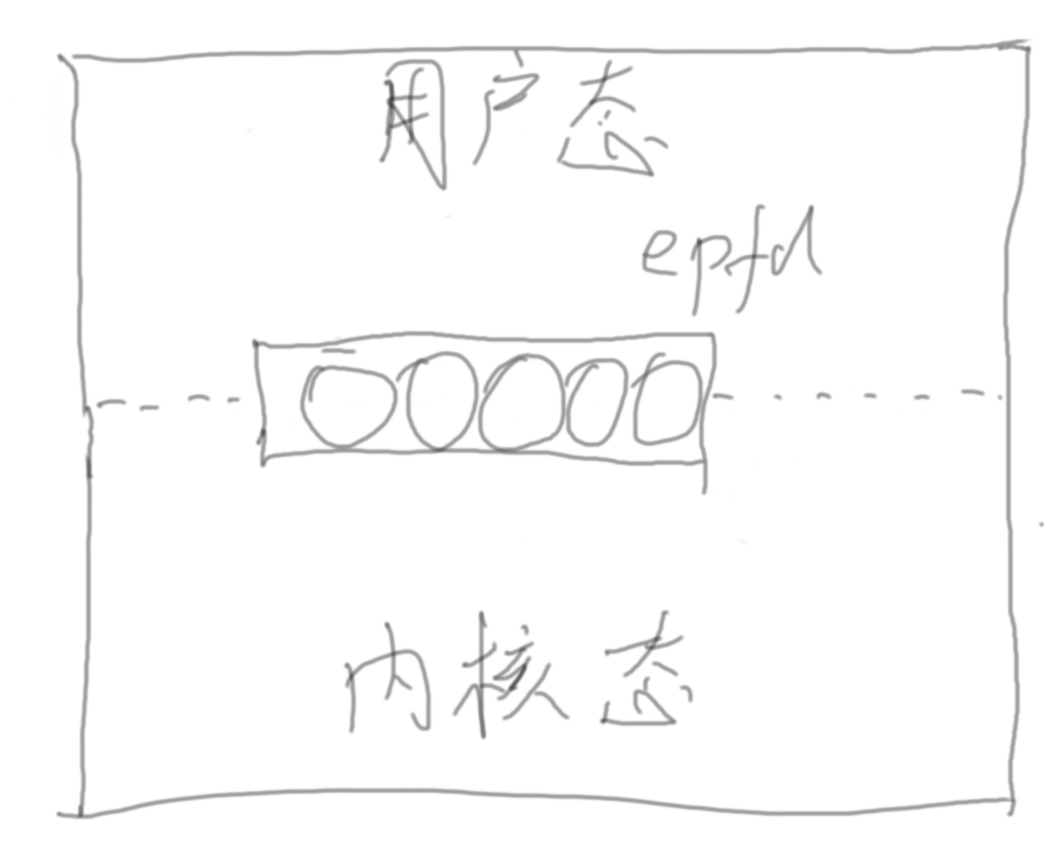 用户态
epfd
内核态